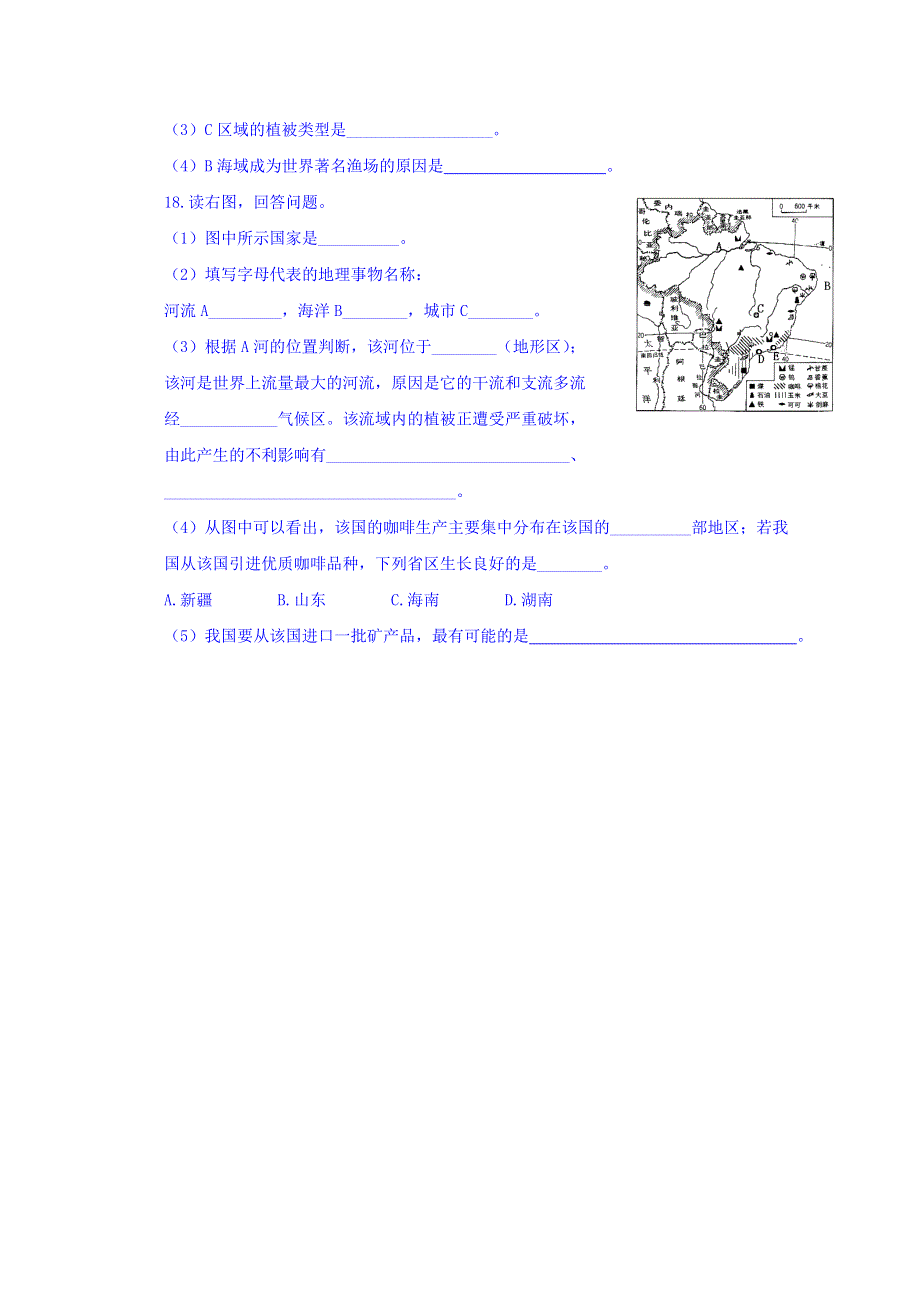 （3）C区域的植被类型是__________________。
（4）B海域成为世界著名渔场的原因是____________________。
18.读右图，回答问题。
（1）图中所示国家是__________。
（2）填写字母代表的地理事物名称：
河流A_________，海洋B________，城市C________。
（3）根据A河的位置判断，该河位于________（地形区）；
该河是世界上流量最大的河流，原因是它的干流和支流多流
经____________气候区。该流域内的植被正遭受严重破坏，
由此产生的不利影响有______________________________、
____________________________________。
（4）从图中可以看出，该国的咖啡生产主要集中分布在该国的__________部地区；若我
国从该国引进优质咖啡品种，下列省区生长良好的是________。
A.新疆 B.山东 C.海南 D.湖南
（5）我国要从该国进口一批矿产品，最有可能的是_________________________________。
委内瑞拉
哥伦比亚
0 600 千米
40
0
A
B
玻利维亚
C
20
20
太平洋
阿根廷
D
E
40
60
锰 甘蔗
钨 香蕉
煤 咖啡 棉花
石油 玉米 大豆
铁 可可 剑麻